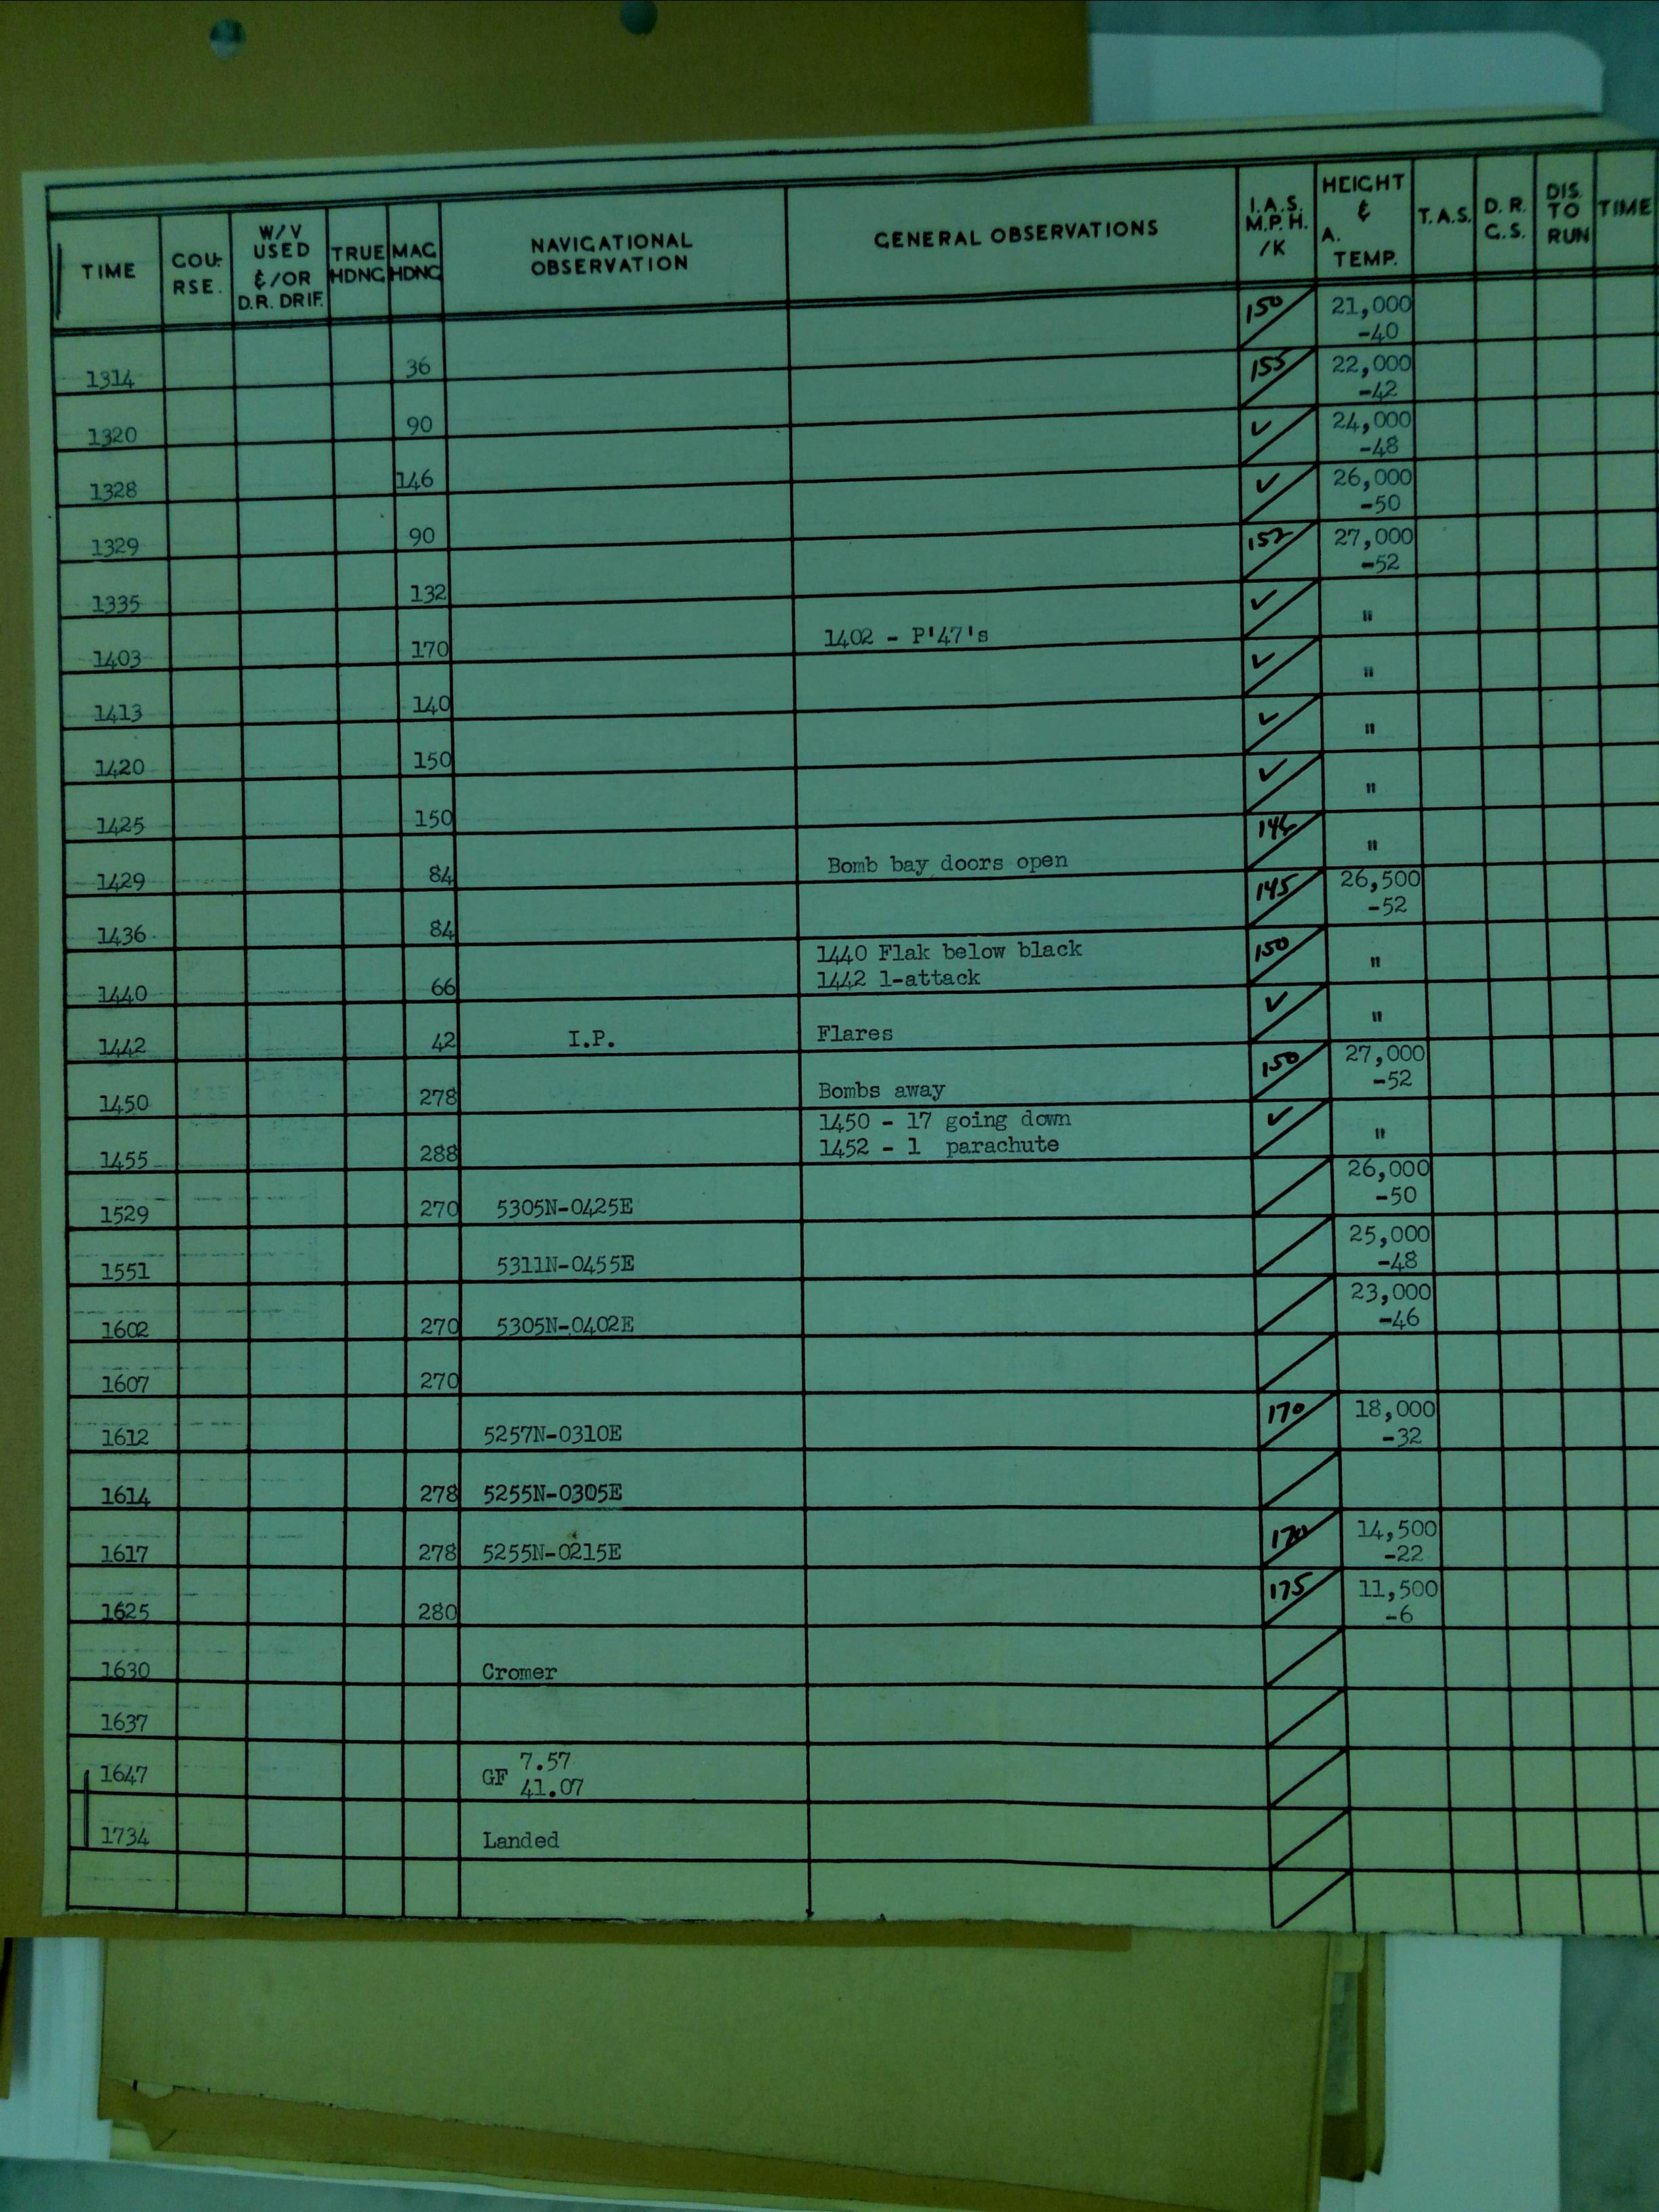 TIME COU- RSE. W/V USED & /OR D.R. DRIF. TRUE HDNG MAG HDNG NAVIGATIONAL OBSERVATION GENERAL OBSERVATIONS I.A.S. M.P.H. /K HEIGHT & A. TEMP. T.A.S. D.R. G.S. DIS. TO RUN TIME
1314 36 150 21,000 -40
1320 90 155 22,000 -42
1328 146 ✓ 24,000 -48
1329 90 ✓ 26,000 -50
1335 132 152 27,000 -52
1403 170 1402 - P'47's ✓ "
1413 140 ✓ "
1420 150 ✓ "
1425 150 ✓ "
1429 84 Bomb bay doors open 146 "
1436 84 145 26,500 -52
1440 66 1440 Flak below black 150 "
1442 1-attack
1442 42 I.P. Flares ✓ "
1450 278 Bombs away 150 27,000 -52
1455 288 1450 - 17 going down ✓ "
1452 - 1 parachute
1529 270 5305N-0425E 26,000 -50
1551 5311N-0455E 25,000 -48
1602 270 5305N-0402E 23,000 -46
1607 270
1612 5257N-0310E 170 18,000 -32
1614 278 5255N-0305E
1617 278 5255N-0215E 170 14,500 -22
1625 280 175 11,500 -6
1630 Cromer
1637
1647 GF 7.57
41.07
1734 Landed